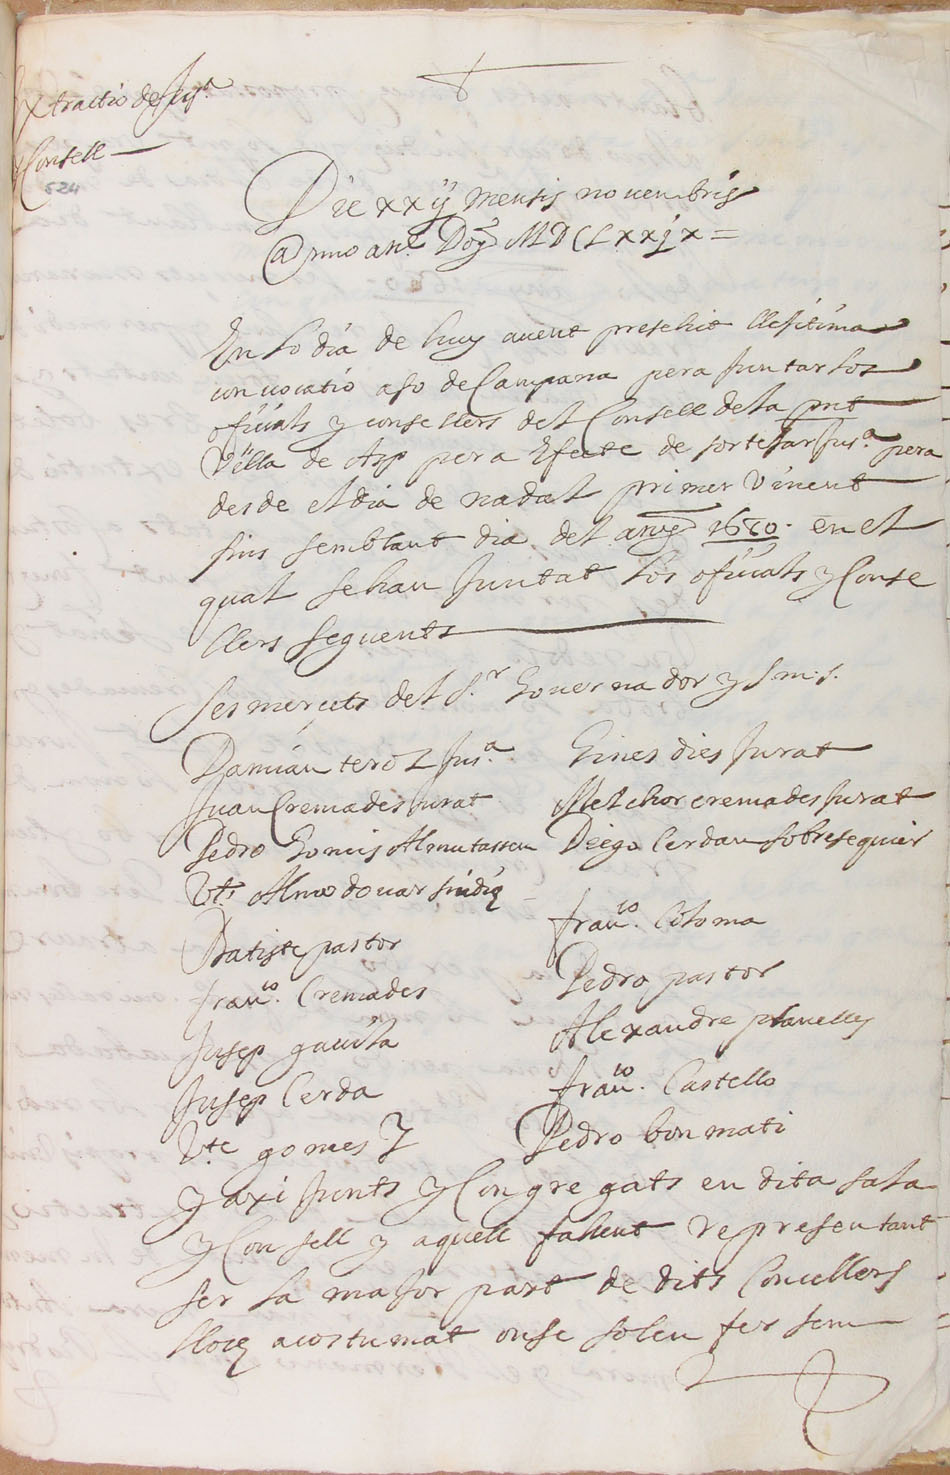 Extractio de Jusª.
Consell
524
Die xxij mensis novenbris
Anno an.t Doy MDCLxxjx =
En lo dia de huy avent presehit llejitima
convocatio a so de Campana pera Juntar los
oficials y consellers del Consell de la pnt
Villa de Asp pera Efecte de sortejar Jusª. pera
desde el dia de nadal primer vinent
fins semblant dia del any 1680. en el
qual se han Juntat los oficials y Conse
llers seguents
Ses merçets del S.r Governador y
Damian terol Jusª.
Gines dies Jurat
Juan Cremades Jurat
Melchor cremades Jurat
Pedro Gomis Almutassen
Diego Cerdan sobresequier
Vt.e Almodovar sindiq
Batiste pastor
franco. Coloma
franco. Cremades
Pedro pastor
Jusep gavila
Alexandre planelles
Jusep Cerda
franco. Castello
Vt.e gomes
Pedro bonmati
y axi Junts y Congregats en dita sala
y Consell y aquell fahent representant
ser la major part de dits Concellers
lloch acostumat onse solen fer sem